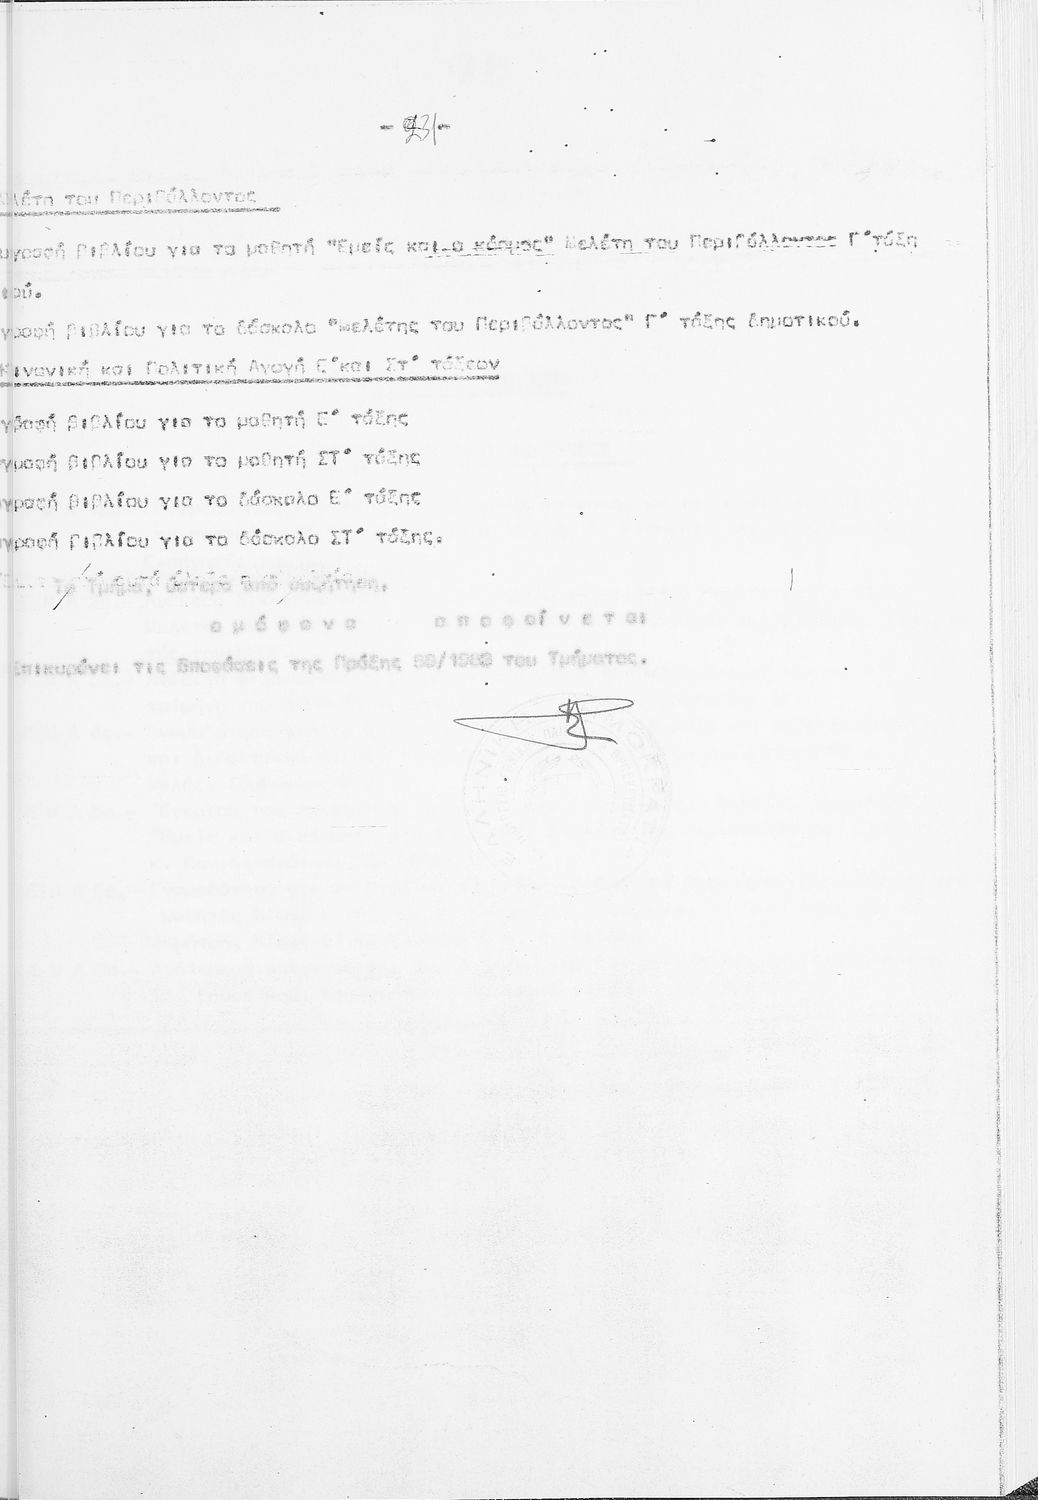 -23-
Μελέτη του Περιβάλλοντος
υγραφή βιβλίου για το μαθητή "Εμείς και ο κόσμος" Μελέτη του Περιβάλλοντος Γ΄τάξη
κού.
γραφή βιβλίου για το δάσκαλο "Μελέτης του Περιβάλλοντος" Γ΄ τάξης δημοτικού.
Κοινωνική και Πολιτική Αγωγή Ε΄και Στ΄ τάξεων
γραφή βιβλίου για το μαθητή Ε΄ τάξης
γραφή βιβλίου για το μαθητή ΣΤ΄ τάξης
γραφή βιβλίου για το δάσκαλο Ε΄ τάξης
γραφή βιβλίου για το δάσκαλο ΣΤ΄ τάξης.
Το Τμήμα, ύστερα από συζήτηση,
ο μ ό φ ω ν α α π ο φ α ί ν ε τ α ι
Επικυρώνει τις αποφάσεις της Πράξης του Τμήματος.